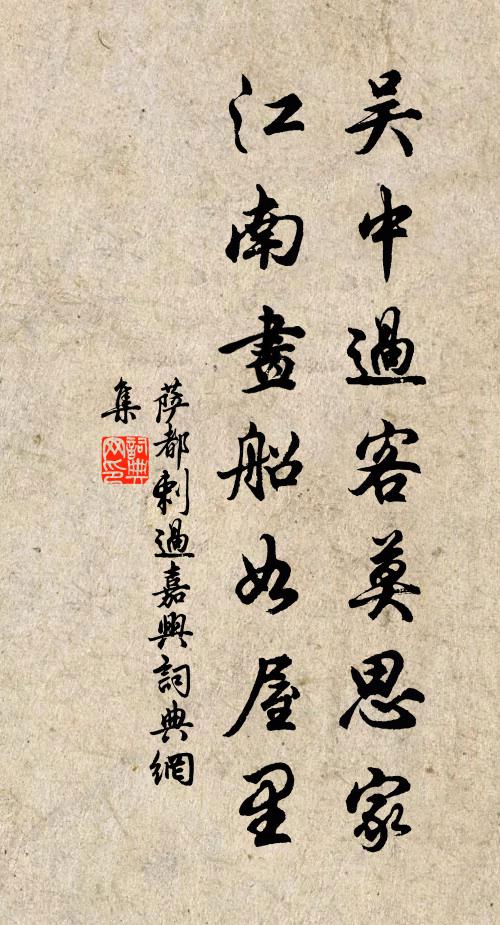 吴中過客莫思家
江南畫船如屋里
薩都剌過嘉興詞典網
集
詞典网印